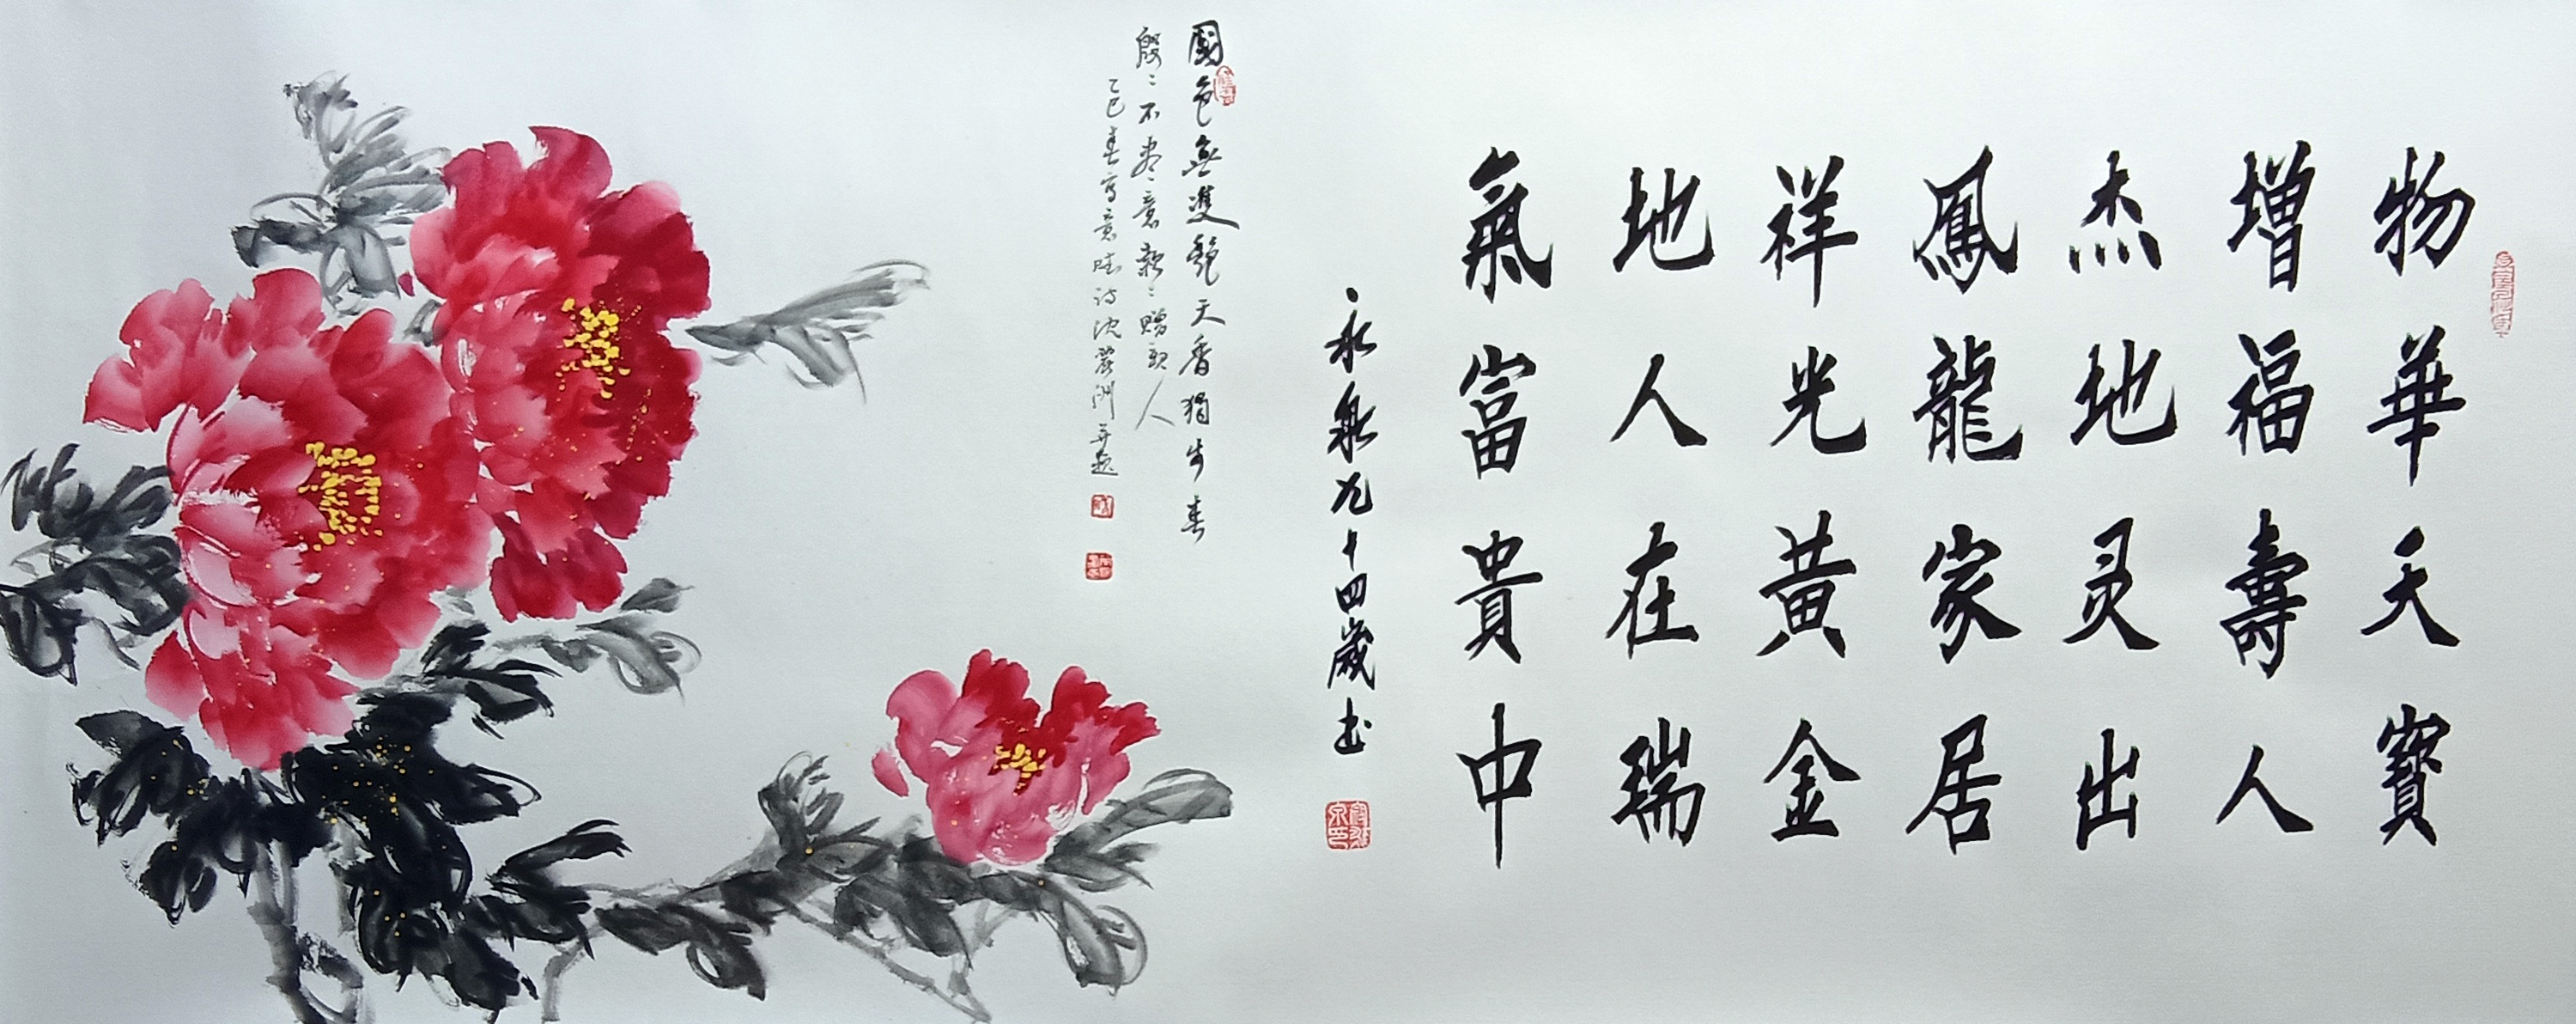 物華天寶
增福壽人
杰地灵出
鳳龍家居
祥光黃金
地人在瑞
氣富貴中
永泉九十四歲书
國色無雙艷天香獨步春
殷二不盡意款二贈 人
乙巳春寫意 诗沈 洲并题